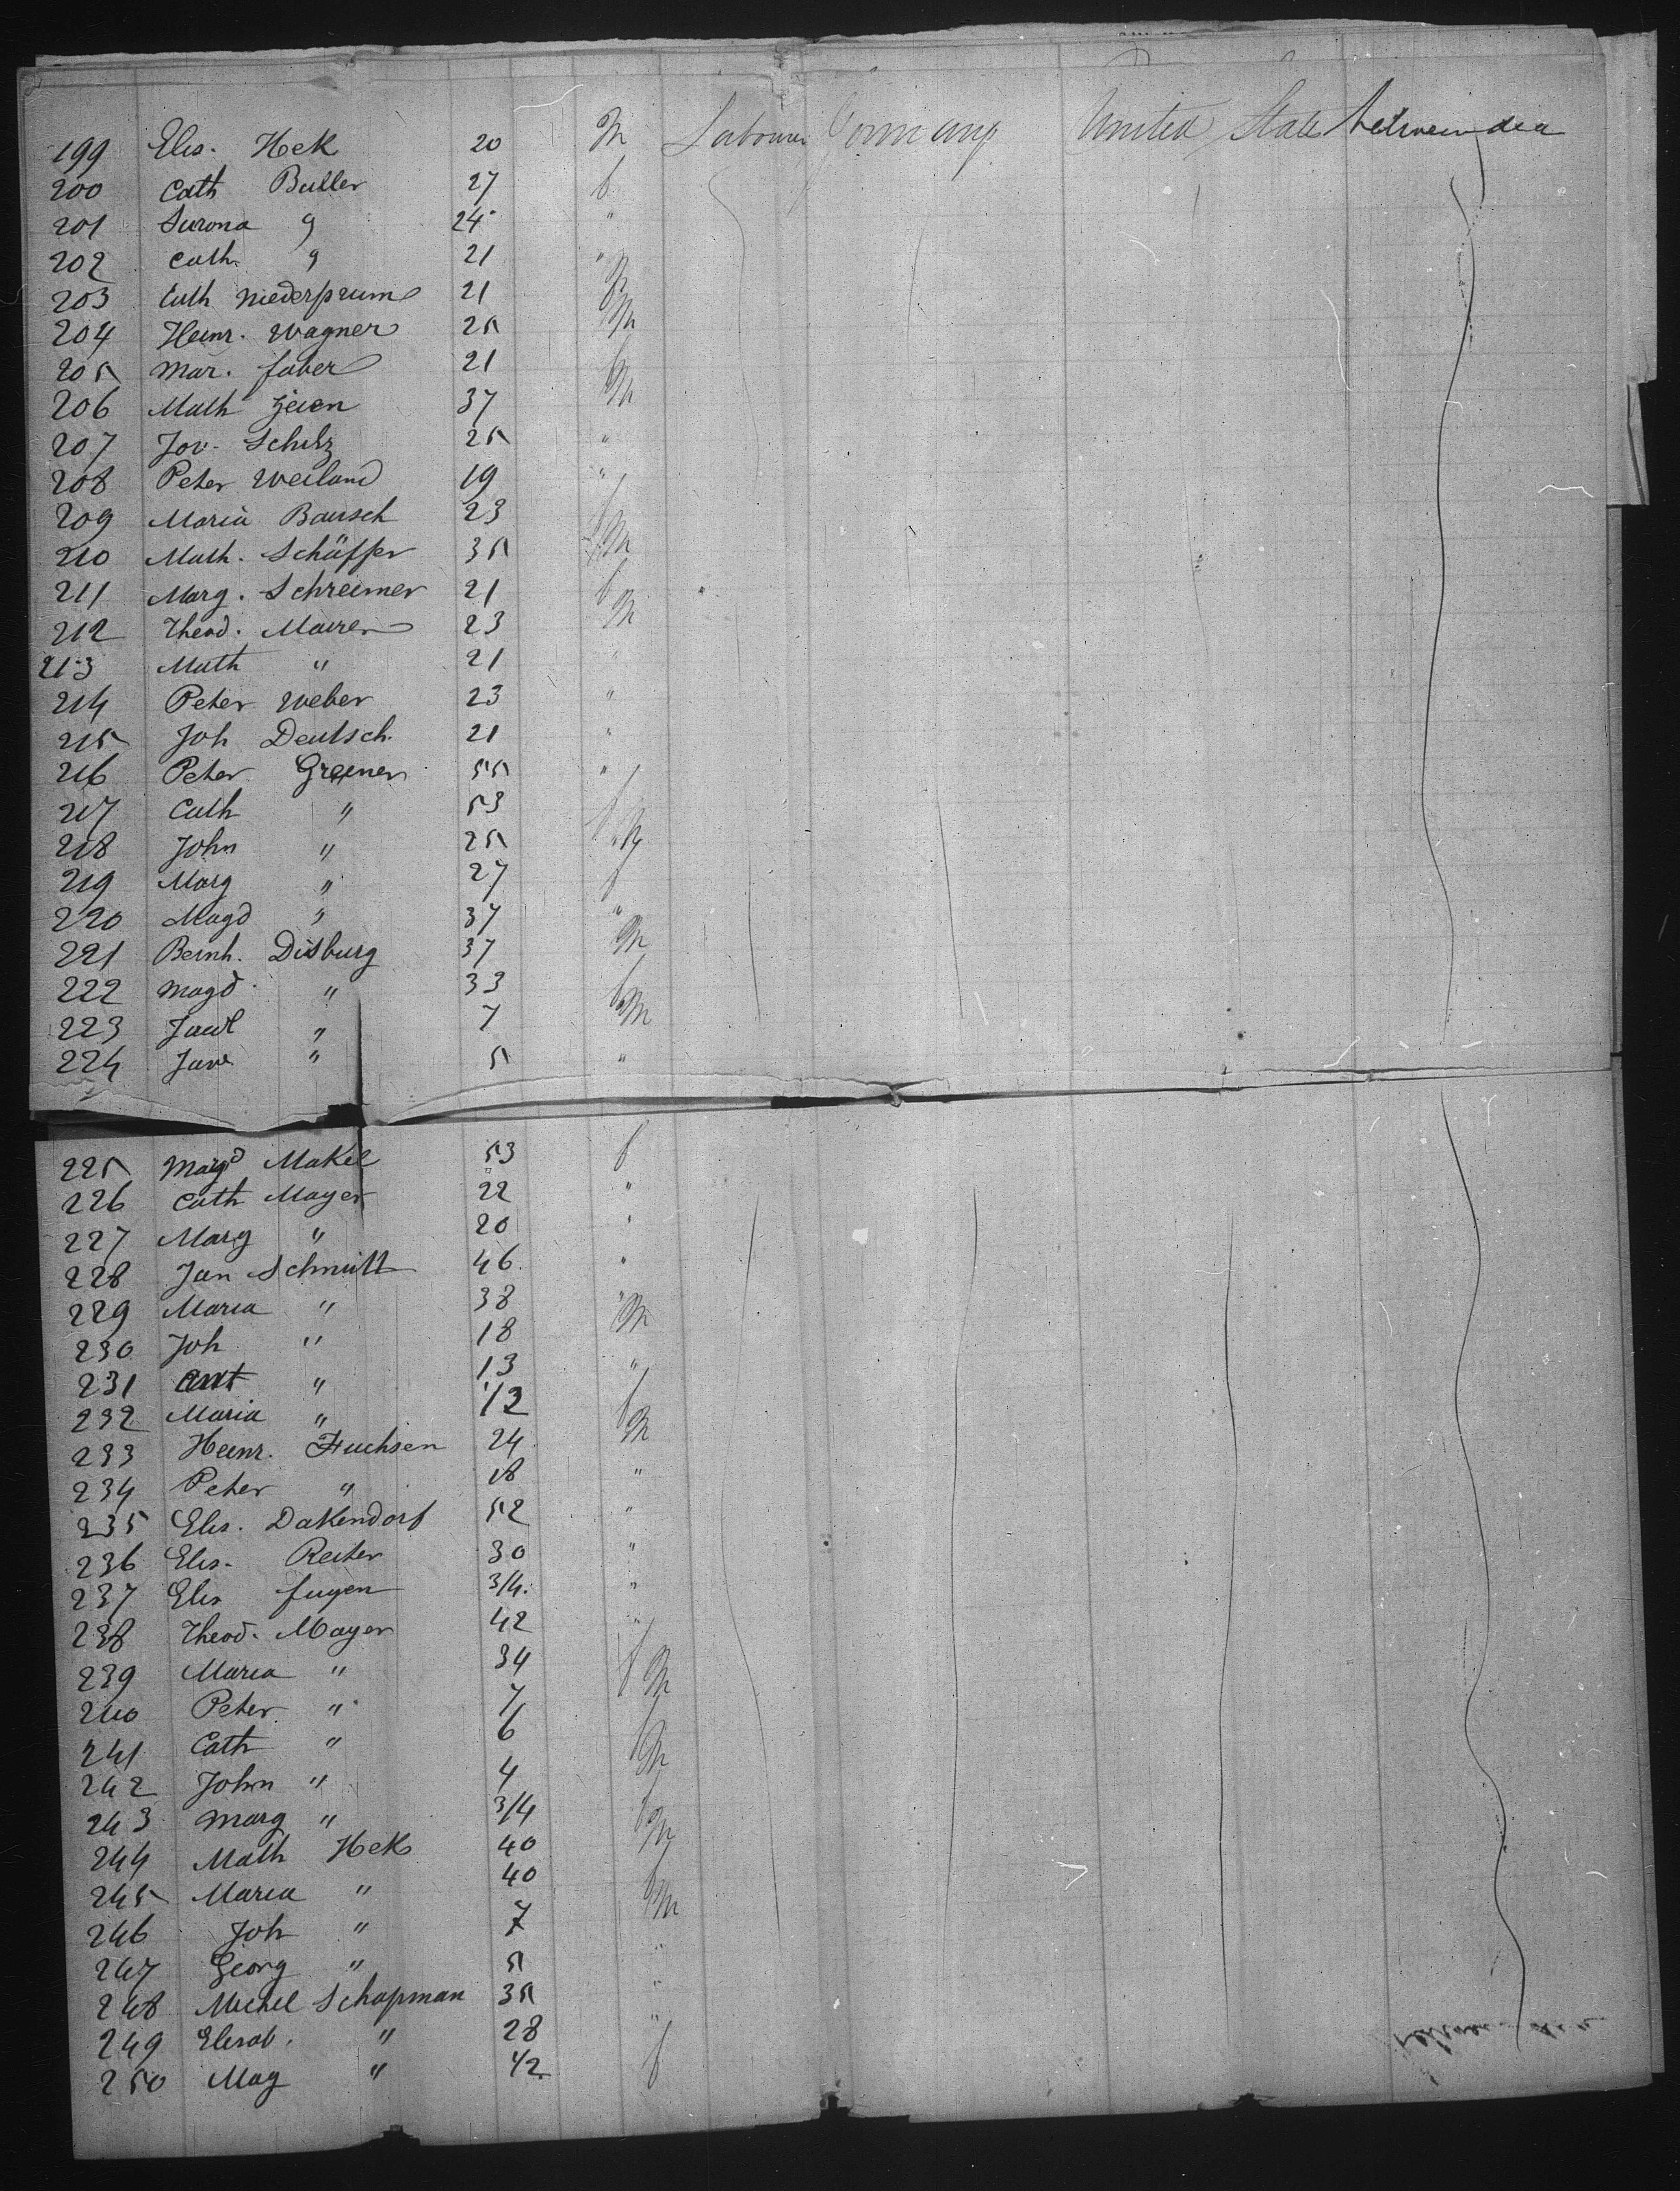 199 Elis. Heck 20 M Labourer Germany United State between dea
200 Cath Butler 27 f
201 Surona " 24 "
202 Cath. " 21 "
203 Cath Niederprum 21 f
204 Heinr. Wagner 25 M
205 Mar. faber 21 f
206 Math Zeien 37 M
207 Jos. Schilz 25 "
208 Peter Weiland 19 "
209 Maria Bausch 23 f
210 Math. Schäffer 35 M
211 Marg. Schreimer 21 f
212 Theod. Mairer 23 M
213 Math " 21 "
214 Peter Weber 23 "
215 Joh Deutsch. 21 "
216 Peter Greiner 55 "
217 Cath " 53 f
218 John " 25 M
219 Marg " 27 f
220 Magd " 37 "
221 Bernh. Disburg 37 M
222 Magd. " 33 f
223 " 7 M
224 " 5 "
225 Magd Makel 53 f
226 Cath Mayer 22 "
227 Marg " 20 "
228 Jan Schmitt 46. "
229 Maria " 38 "
230 Joh " 18 M
231 Ant " 13 "
232 Maria " 1/2 f
233 Heinr. Fuchsen 24 M
234 Peter " 18 "
235 Elis. Dakendorf 52 "
236 Elis. Reiter 30 "
237 Elis fuyen 3/4. "
238 Theod. Mayer 42 "
239 Maria " 34 f
240 Peter " 7 M
241 Cath " 6 f
242 John " 4 M
243 Marg " 3/4 f
244 Math Hek 40 M
245 Maria " 40 f
246 Joh " 7 M
247 Georg " 5 "
248 Michel Schapman 35 "
249 Elisab. " 28 "
250 Mag " 1/2 f